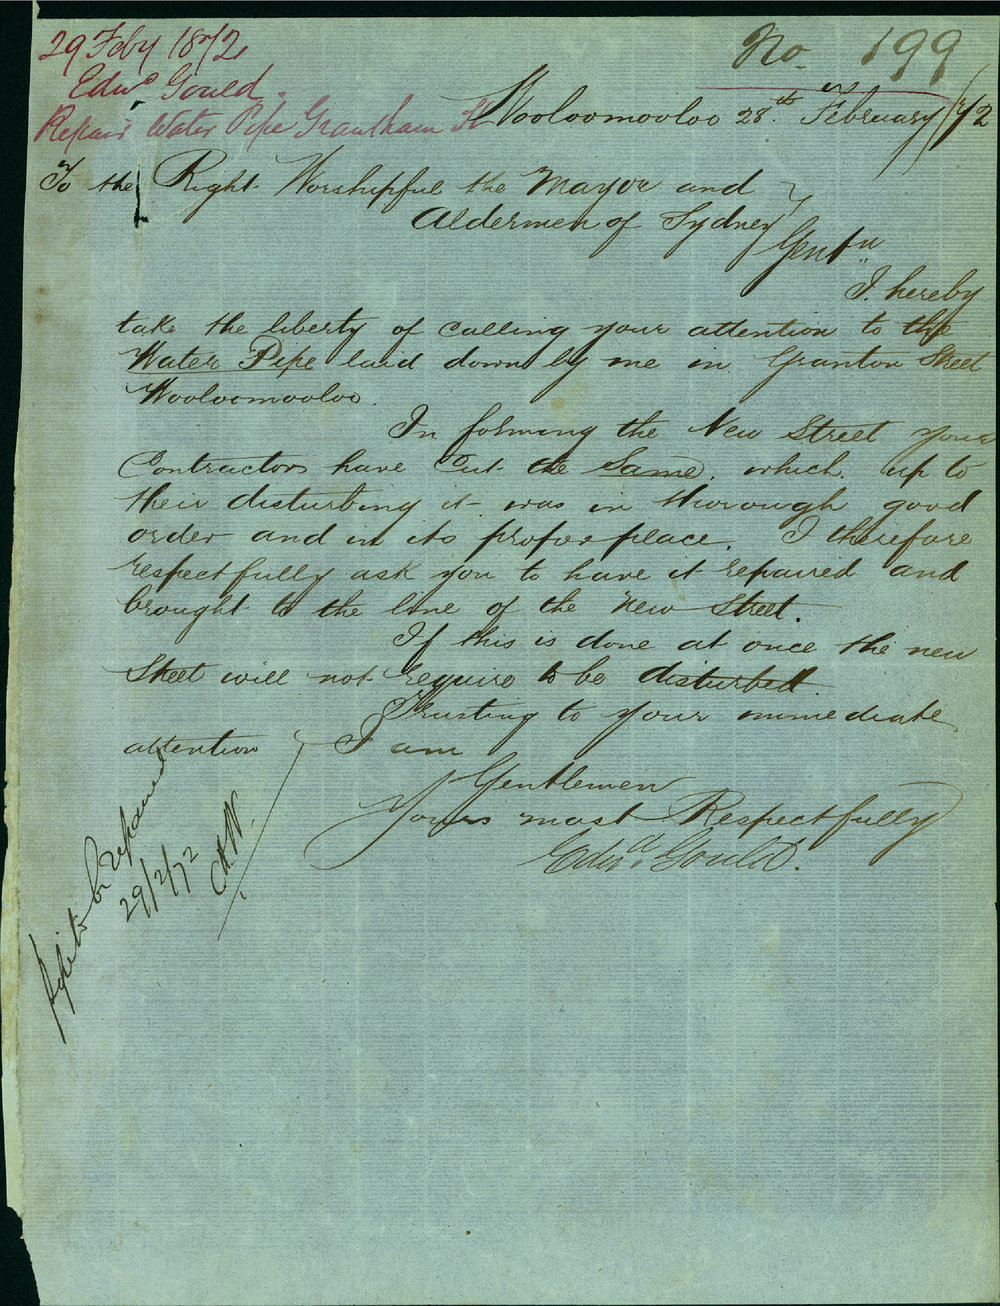 29 Feby 1872
Edwd Gould.
Repair Water Pipe Grantham St
No. 199
Wooloomooloo 28th February /72
To the Right Worshipful the Mayor and
Aldermen of Sydney
Gentn
I hereby
take the liberty of calling your attention to the
Water Pipe laid down by me in Granton Street
Wooloomooloo.
In forming the New Street your
Contractors have Cut the Same, which up to
their disturbing it was in thorough good
order and in its proper place. I therefore
respectfully ask you to have it repaired and
brought to the line of the New Street.
If this is done at once the new
Street will not require to be disturbed.
Trusting to your immediate
attention I am
Gentlemen
Yours most Respectfully
Edwd. Gould.
to be repaired
29/2/72